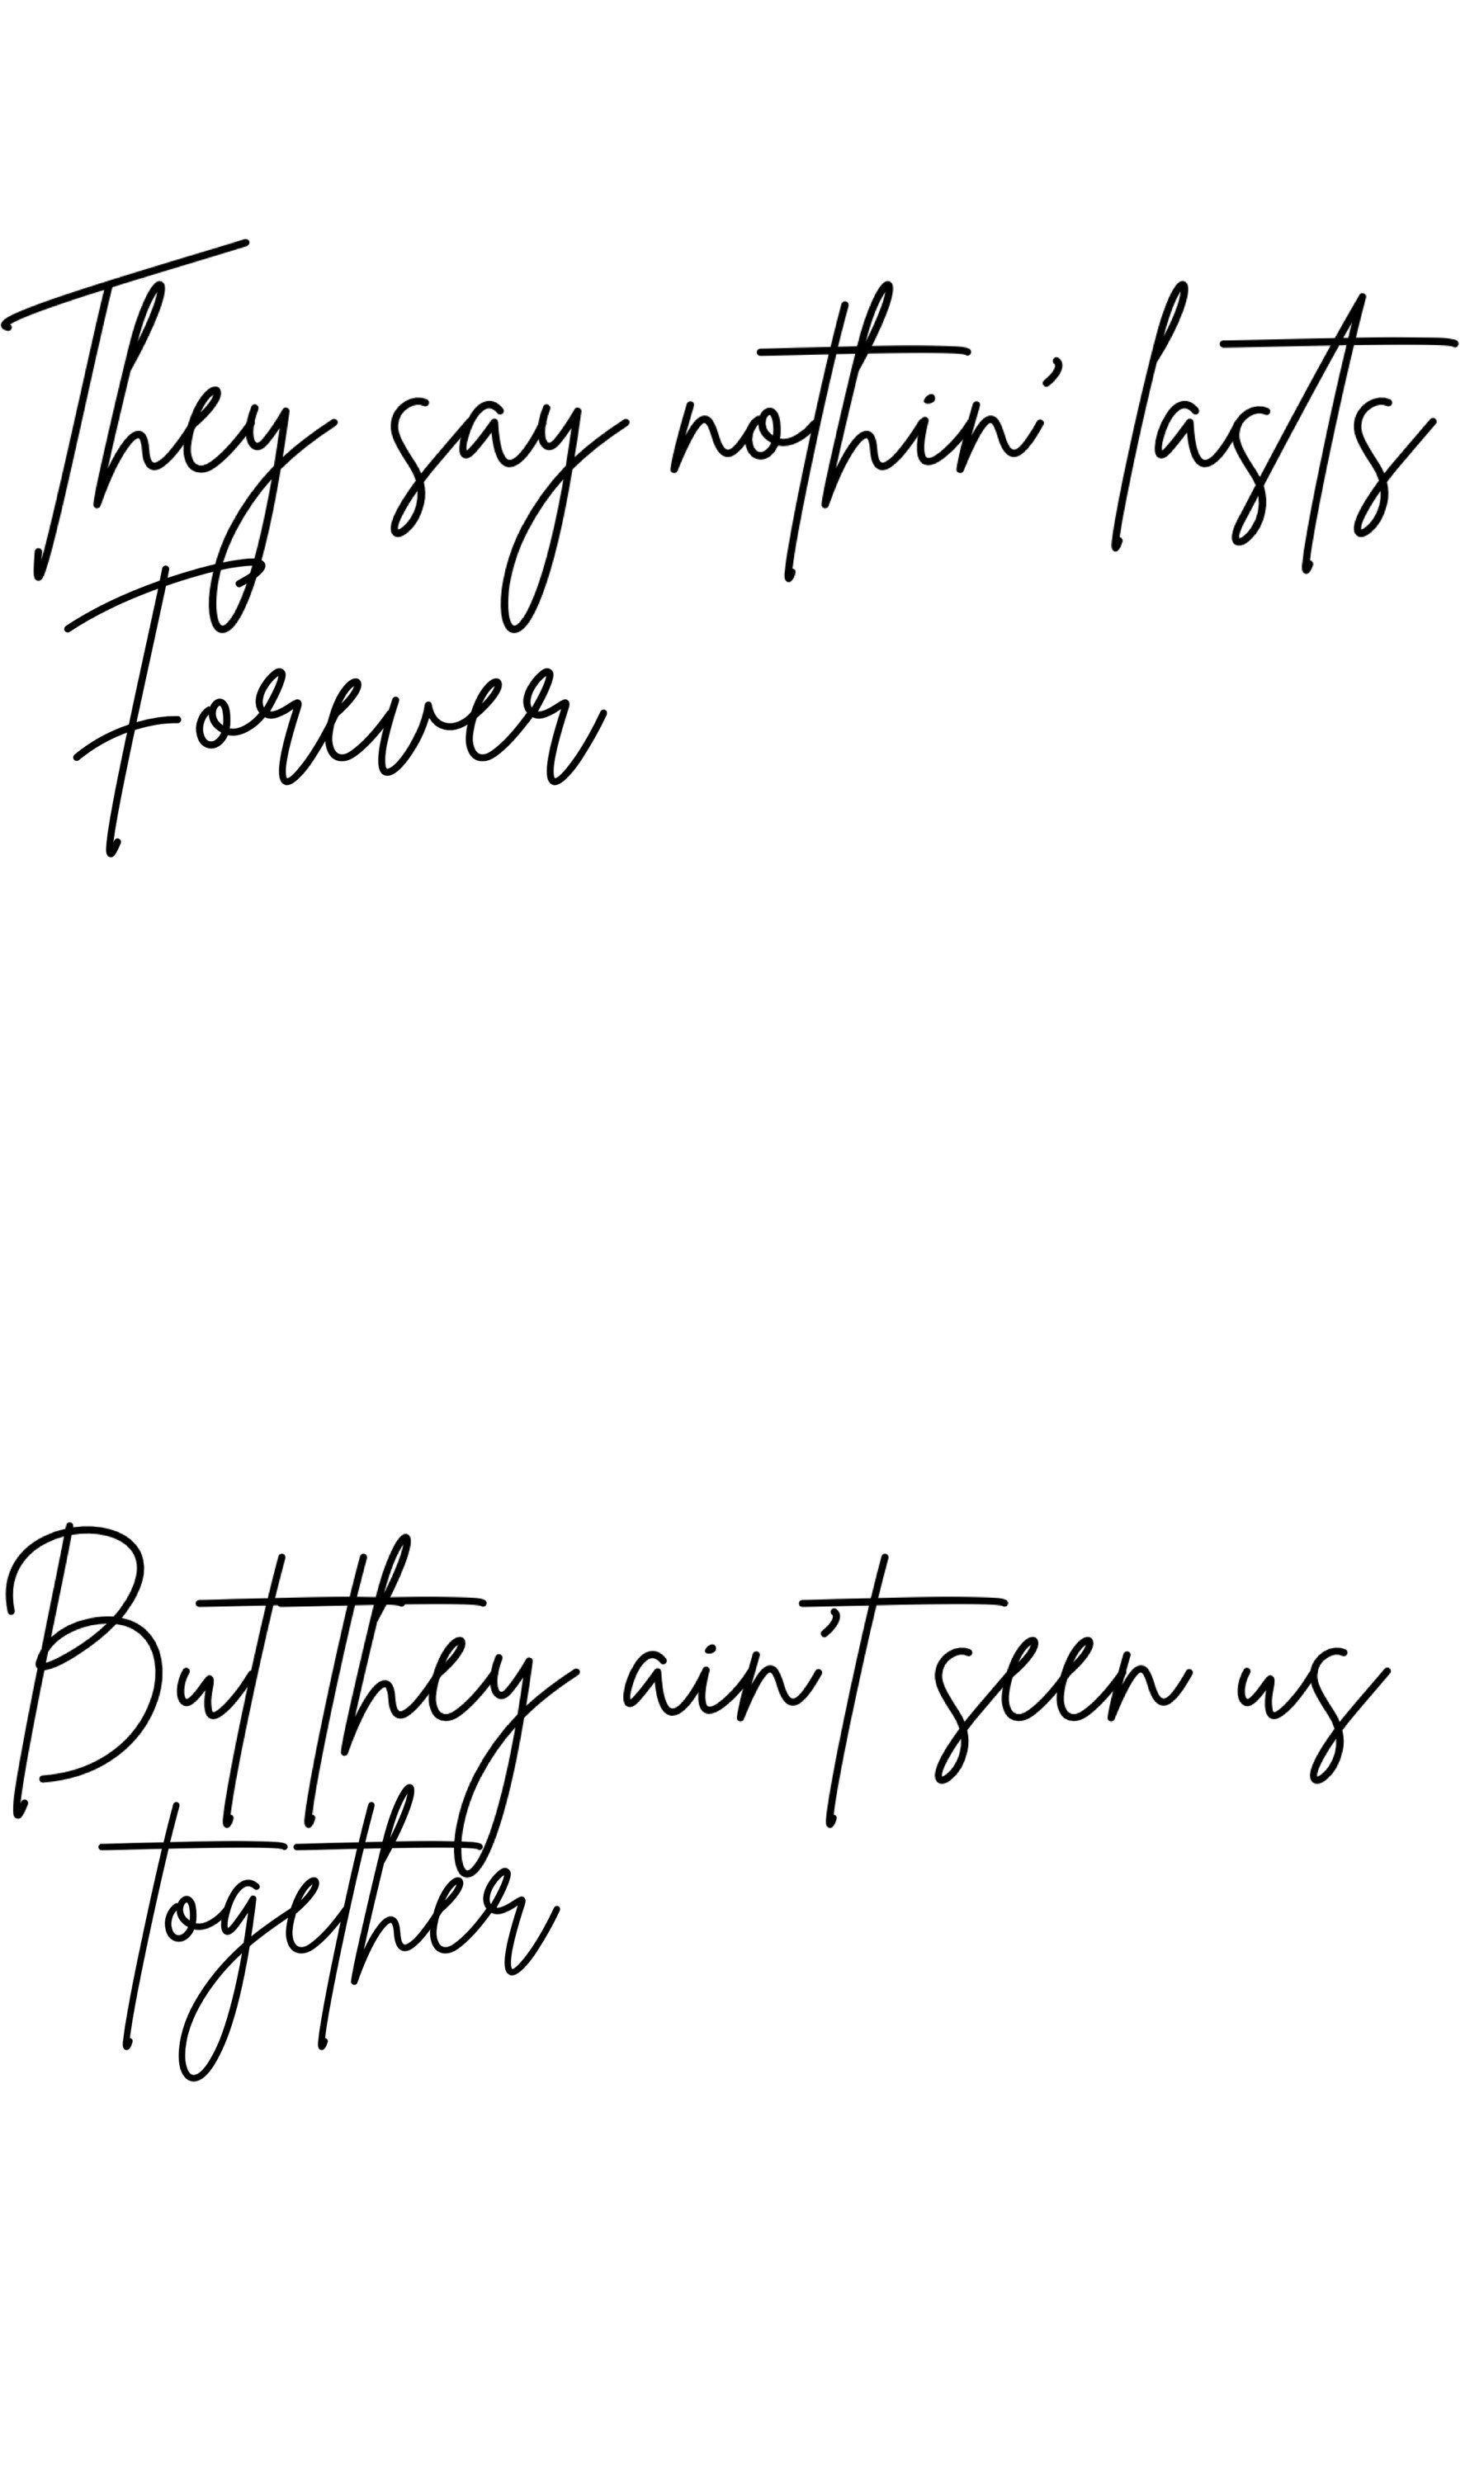 They say nothin' lasts
Forever
But they ain't seen us
together